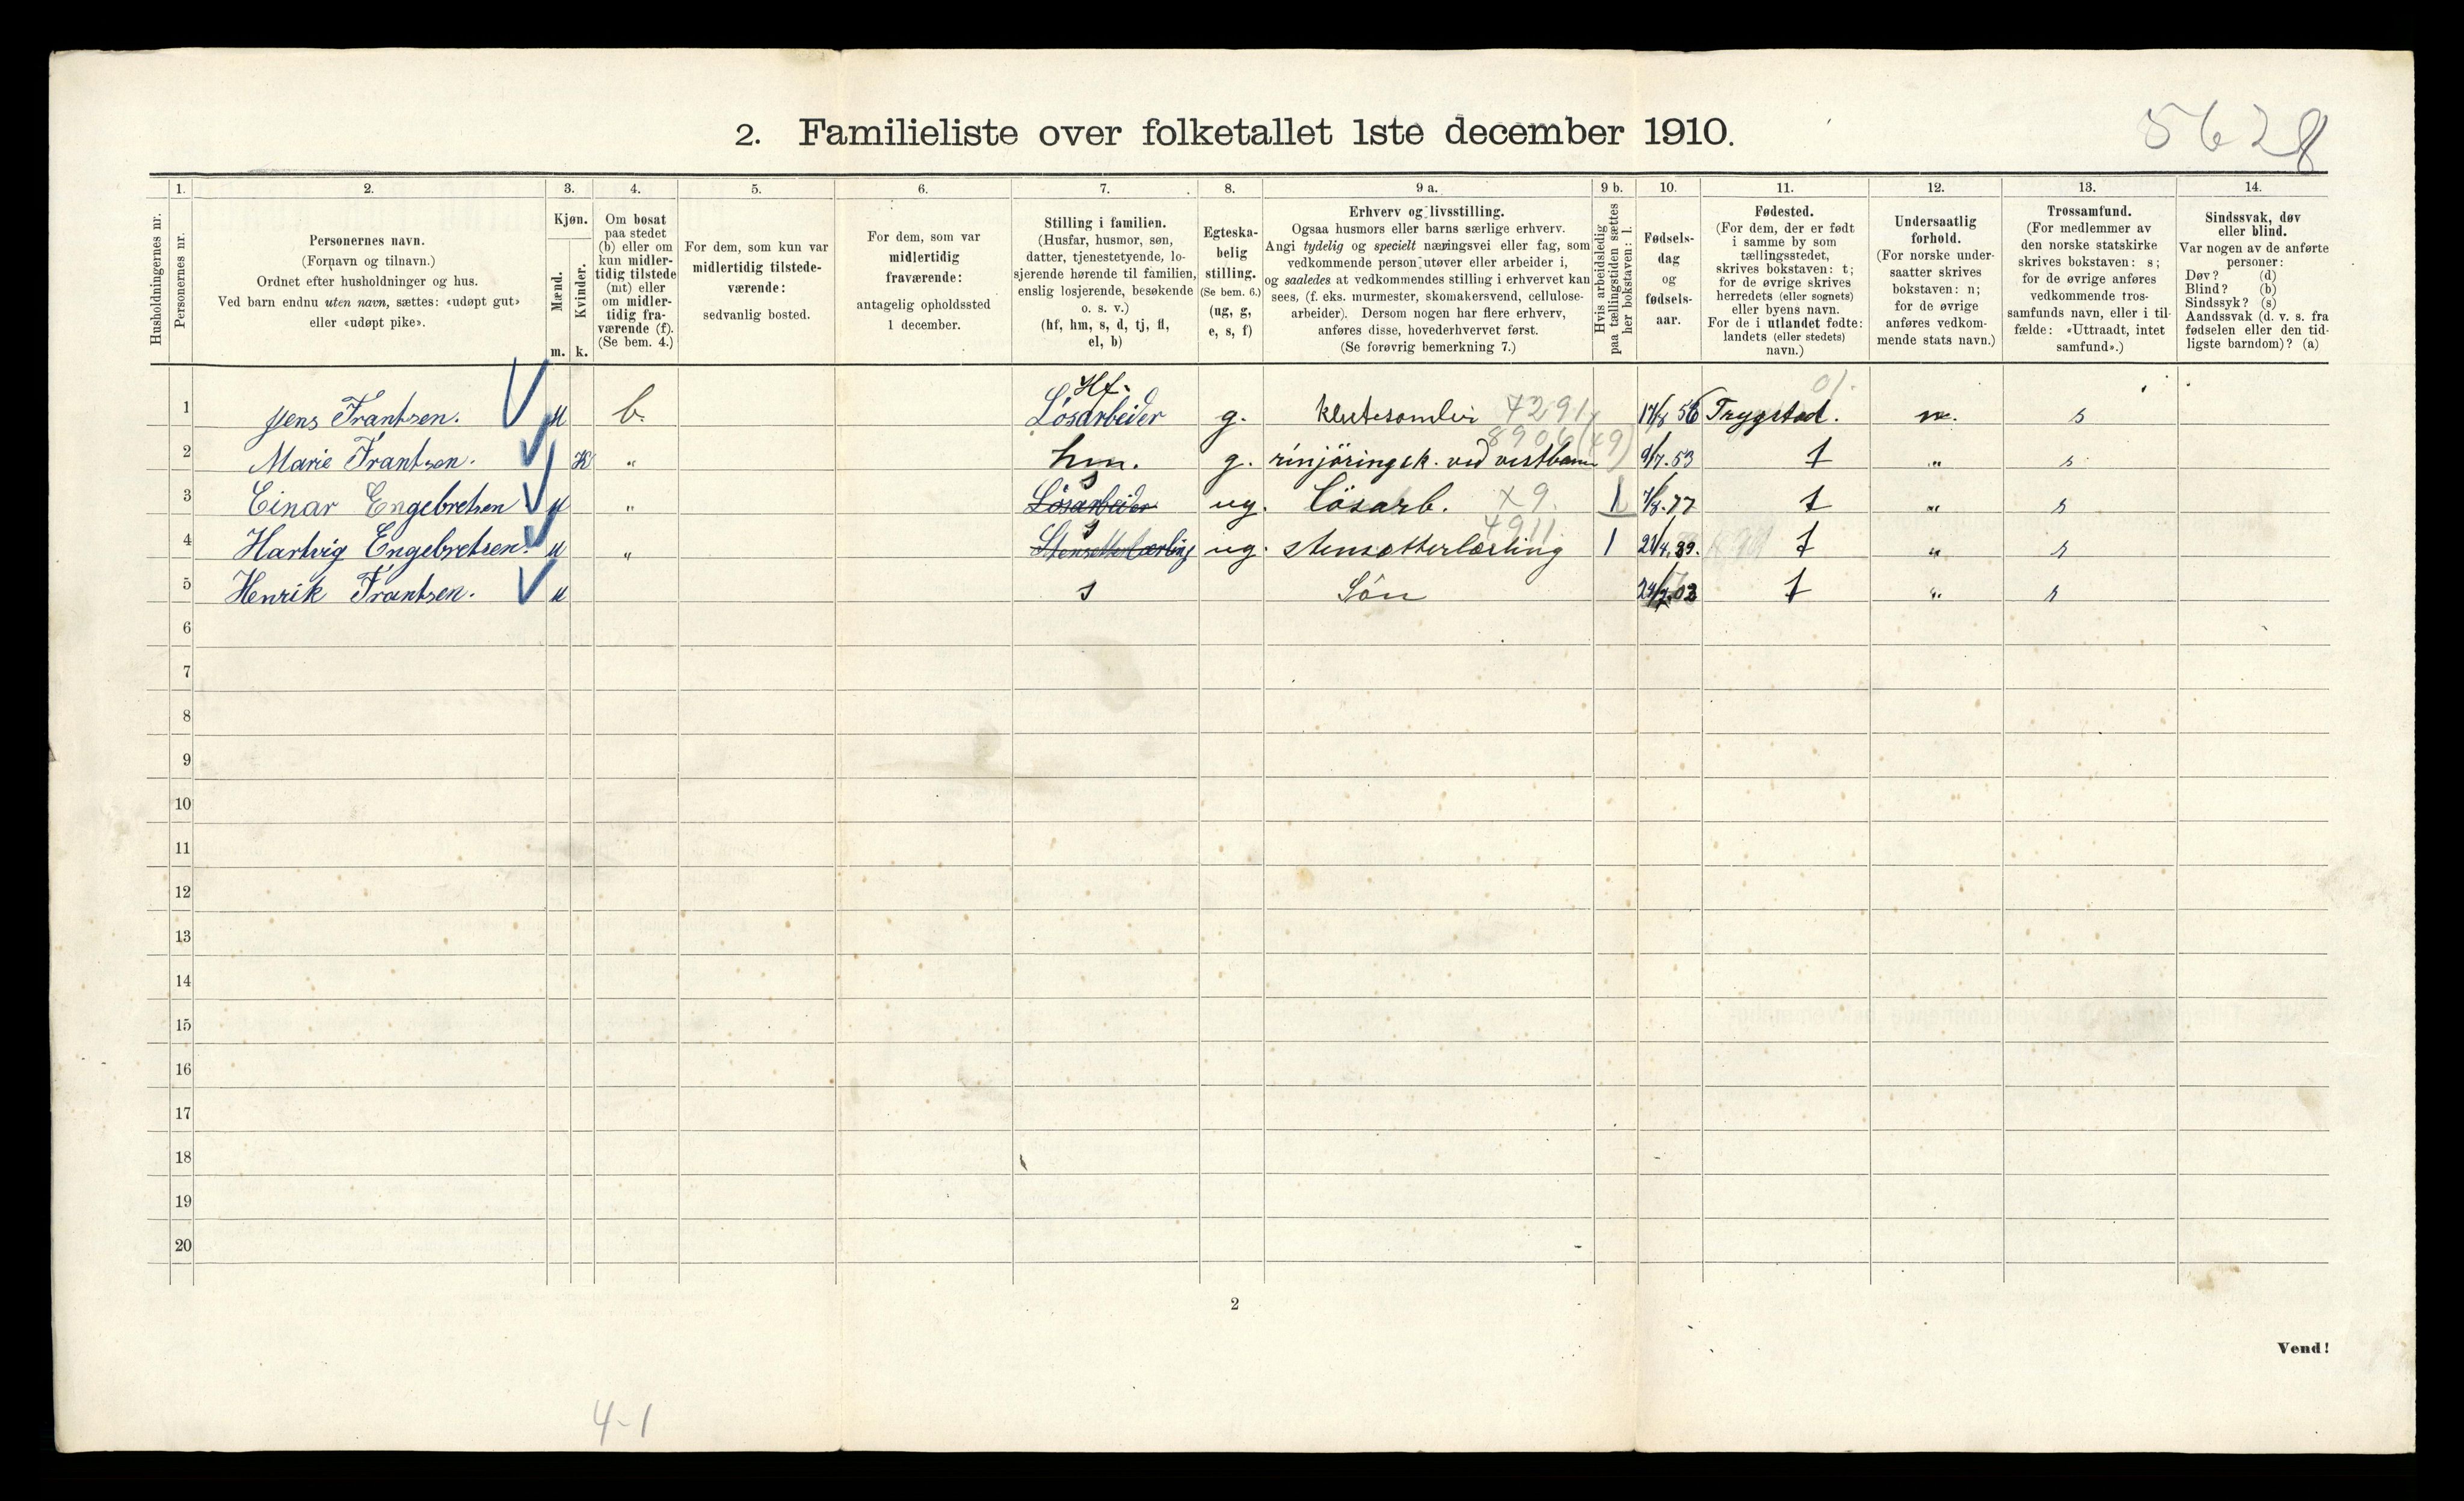 5628
2. Familieliste over folketallet 1ste december 1910.
Husholdningernes nr.
1.
Personernes nr.
2.
Personernes navn.
(Fornavn og tilnavn.)
Ordnet efter husholdninger og hus.
Ved barn endnu uten navn, sættes: «udøpt gut»
eller «udøpt pike».
3.
Kjøn.
Mænd.
Kvinder.
m. k.
4.
Om bosat
paa stedet
(b) eller om
kun midler-
tidig tilstede
(mt) eller
om midler-
tidig fra-
værende (f).
(Se bem. 4.)
5.
For dem, som kun var
midlertidig tilstede-
værende:
sedvanlig bosted.
6.
For dem, som var
midlertidig
fraværende:
antagelig opholdssted
1 december.
7.
Stilling i familien.
(Husfar, husmor, søn,
datter, tjenestetyende, lo-
sjerende hørende til familien,
enslig losjerende, besøkende
o. s. v.)
(hf, hm, s, d, tj, fl,
el, b)
8.
Egteska-
belig
stilling.
(Se bem. 6.)
(ug, g,
e, s, f)
9 a.
Erhverv og livsstilling.
Ogsaa husmors eller barns særlige erhverv.
Angi tydelig og specielt næringsvei eller fag, som
vedkommende person utøver eller arbeider i,
og saaledes at vedkommendes stilling i erhvervet kan
sees, (f. eks. murmester, skomakersvend, cellulose-
arbeider). Dersom nogen har flere erhverv,
anføres disse, hovederhvervet først.
(Se forøvrig bemerkning 7.)
9 b.
Hvis arbeidsledig
paa tællingstiden sættes
her bokstaven: l.
10.
Fødsels-
dag
og
fødsels-
aar.
11.
Fødested.
(For dem, der er født
i samme by som
tællingsstedet,
skrives bokstaven: t;
for de øvrige skrives
herredets (eller sognets)
eller byens navn.
For de i utlandet fødte:
landets (eller stedets)
navn.)
12.
Undersaatlig
forhold.
(For norske under-
saatter skrives
bokstaven: n;
for de øvrige
anføres vedkom-
mende stats navn.)
13.
Trossamfund.
(For medlemmer av
den norske statskirke
skrives bokstaven: s;
for de øvrige anføres
vedkommende tros-
samfunds navn, eller i til-
fælde: «Uttraadt, intet
samfund».)
14.
Sindssvak, døv
eller blind.
Var nogen av de anførte
personer:
Døv? (d)
Blind? (b)
Sindssyk? (s)
Aandssvak (d. v. s. fra
fødselen eller den tid-
ligste barndom)? (a)
Hf. 01.
1 Jens Frantsen. M b. Lösarbeider g. klutesamler 7291 56 Trygstad. n. s
8906 (49)
2 Marie Frantsen. K " hm. g. rinjöringsk. vid vestbanen 9/7. 53 t " s
s
3 Einar Engebretsen M " Lösarbeider ug. Lösarb. X9. l 7/8. 77 t " s
s 4911
4 Hartvig Engebretsen. M " Stensetterlærling ug. stensætterlærling l 21/4. 89. t " s
5 Henrik Frantsen. M s Sön 02 t " s
6
7
8
9
10
11
12
13
14
15
16
17
18
19
20
2
Vend!
4-1